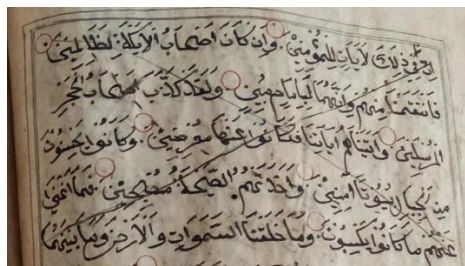 اِنَّ فِي ذَلِكَ لَايَاتٍ لِلْمُؤْمِنِينَ وَاِنْ كَانَ اَصْحَابُ الْاَيْكَةِ لَظَالِمِينَ
فَانْتَقَمْنَا مِنْهُمْ وَاِنَّهُمَا لَبِاِمَامٍ مُبِينٍ وَلَقَدْ كَذَّبَ اَصْحَابُ الْحِجْرِ
الْمُرْسَلِينَ وَاتَيْنَاهُمْ ايَاتِنَا فَكَانُوا عَنْهَا مُعْرِضِينَ وَكَانُوا يَنْحِتُونَ
مِنَ الْجِبَالِ بُيُوتًا امِنِينَ فَاَخَذَتْهُمُ الصَّيْحَةُ مُصْبِحِينَ فَمَا اَغْنَى
عَنْهُمْ مَا كَانُوا يَكْسِبُونَ وَمَا خَلَقْنَا السَّمَوَاتِ وَالْاَرْضَ وَمَا بَيْنَهُمَا